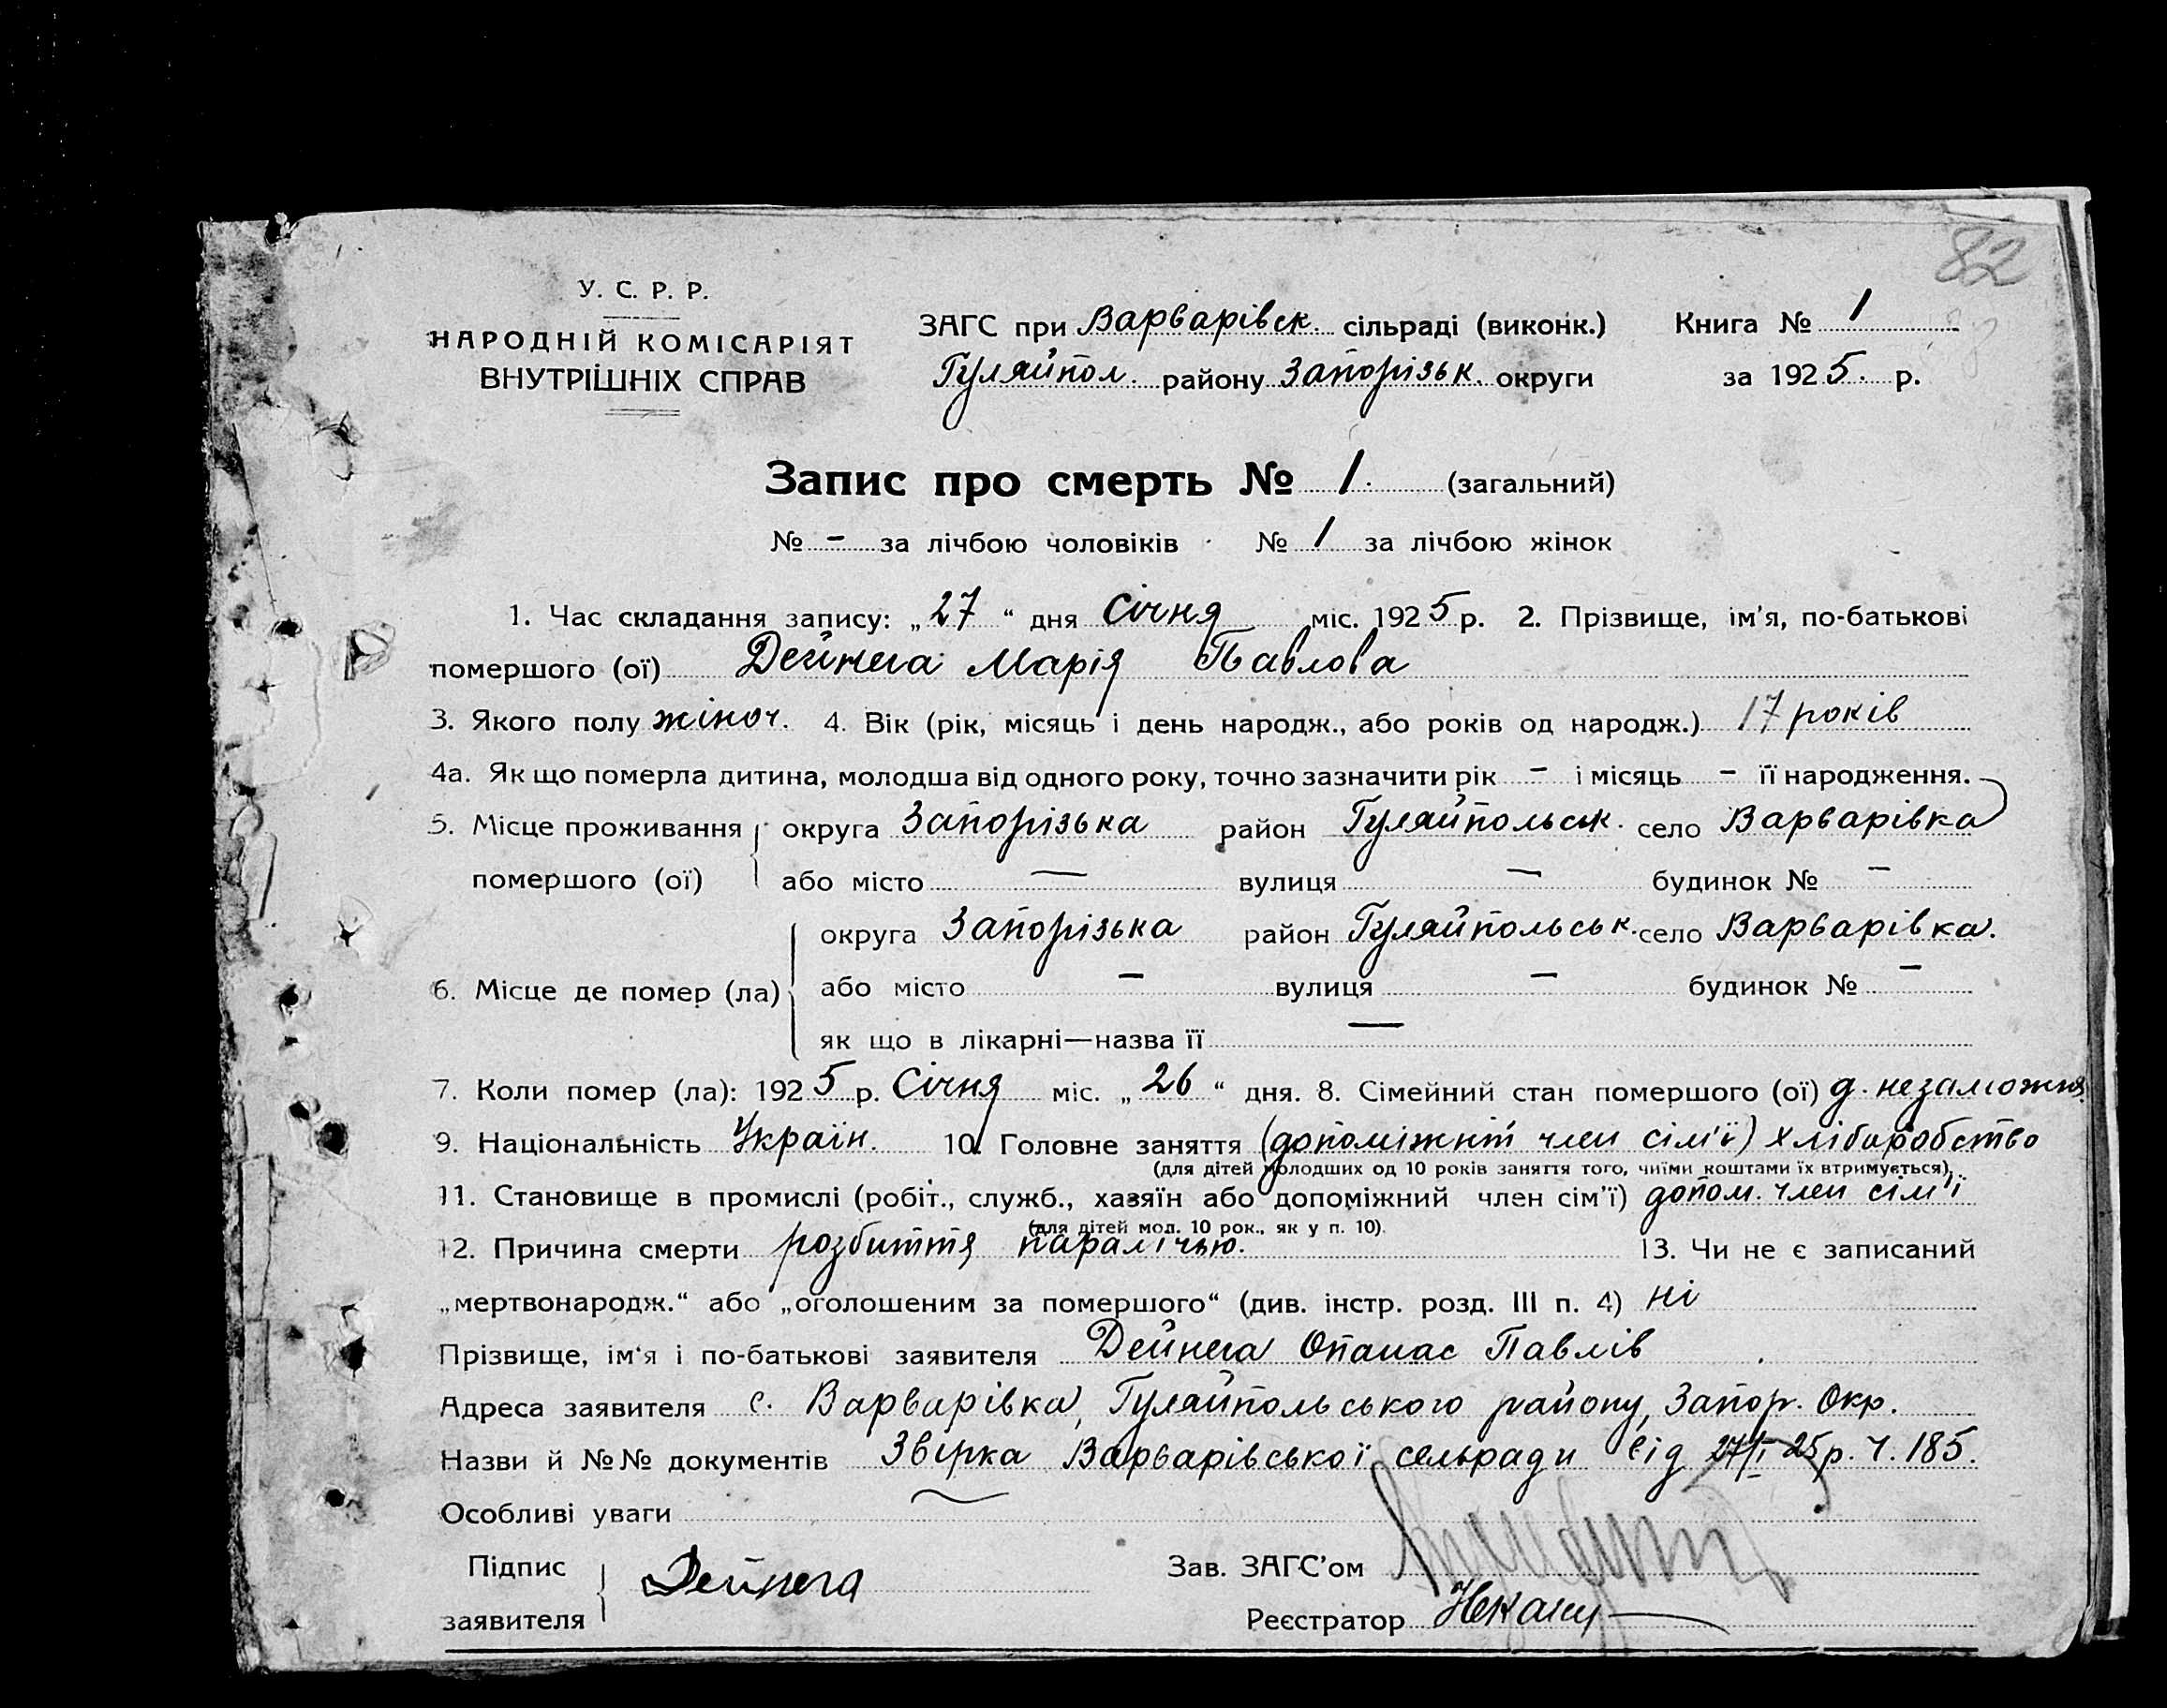 82
У. С. Р. Р.
НАРОДНІЙ КОМІСАРІЯТ
ВНУТРІШНІХ СПРАВ
ЗАГС при Варварівск. сільраді (виконк.)
Гуляйпол. району Запорізьк. округи
Книга № 1
за 1925. р.
Запис про смерть № 1. (загальний)
№ - за лічбою чоловіків № 1 за лічбою жінок
1. Час складання запису: „27“ дня Січня міс. 1925 р. 2. Прізвище, ім'я, по-батькові
помершого (ої) Дейнега Марія Павлова
3. Якого полу жіноч. 4. Вік (рік, місяць і день народж., або років од народж.) 17 років
4а. Як що померла дитина, молодша від одного року, точно зазначити рік - і місяць - її народження.
5. Місце проживання округа Запорізька район Гуляйпольськ. село Варварівка
помершого (ої) або місто — вулиця — будинок № —
округа Запорізька район Гуляйпольськ. село Варварівка.
6. Місце де помер (ла) або місто — вулиця — будинок № —
як що в лікарні—назва її —
7. Коли помер (ла): 1925 р. Січня міс. „26“ дня. 8. Сімейний стан помершого (ої) д. незаможня
9. Національність Україн. 10. Головне заняття (допоміжнт член сім'ї) хліборобство
(для дітей молодших од 10 років заняття того, чиїми коштами їх втримується).
11. Становище в промислі (робіт., служб., хазяїн або допоміжний член сім'ї) допом. член сім'ї
(для дітей мол. 10 рок., як у п. 10).
12. Причина смерти розбиття паралічью. 13. Чи не є записаний
„мертвонародж.“ або „оголошеним за помершого“ (див. інстр. розд. III п. 4) ні
Прізвище, ім'я і по-батькові заявителя Дейнега Опанас Павлів
Адреса заявителя с. Варварівка, Гуляйпольського району, Запор. Окр.
Назви й №№ документів Звірка Варварівської сельради від 27/I 25р. ч. 185.
Особливі уваги
Підпис заявителя Дейнега
Зав. ЗАГС'ом
Реєстратор